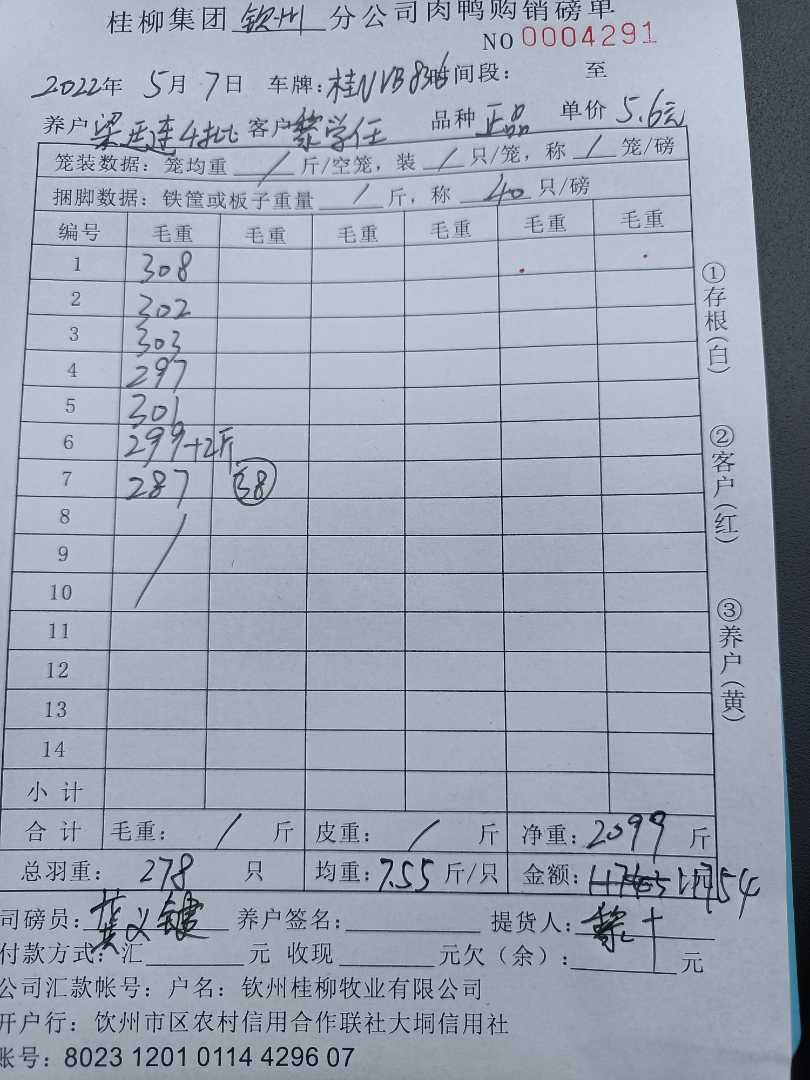 桂柳集团 钦州 分公司肉鸭购销磅单
NO 0004291
2022年 5月 7日 车牌: 桂NVB 时间段: 至
养户 梁廷连4批 客户 黎学任 品种 正品 单价 5.6元
笼装数据: 笼均重 / 斤/空笼, 装 / 只/笼, 称 / 笼/磅
捆脚数据: 铁筐或板子重量 / 斤, 称 40 只/磅
编号 毛重 毛重 毛重 毛重 毛重 毛重
1 308
2 302
3 303
4 297
5 301
6 299+2斤
7 287 38
8
9
10
11
12
13
14
小计
合计 毛重: / 斤 皮重: / 斤 净重: 2099 斤
总羽重: 278 只 均重: 7.55 斤/只 金额: 11754
司磅员: 龚义键 养户签名: 提货人: 黎
付款方式: 汇 元 收现 元欠(余): 元
公司汇款帐号: 户名: 钦州桂柳牧业有限公司
开户行: 钦州市区农村信用合作联社大垌信用社
账号: 8023 1201 0114 4296 07
①存根(白)
②客户(红)
③养户(黄)